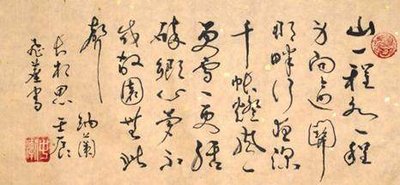 山一程水一程
身向榆關
那畔行夜深
千帳燈風一
更雪一更聒
碎鄉心夢不
成故園無此
聲
納蘭
長相思 壬辰
書